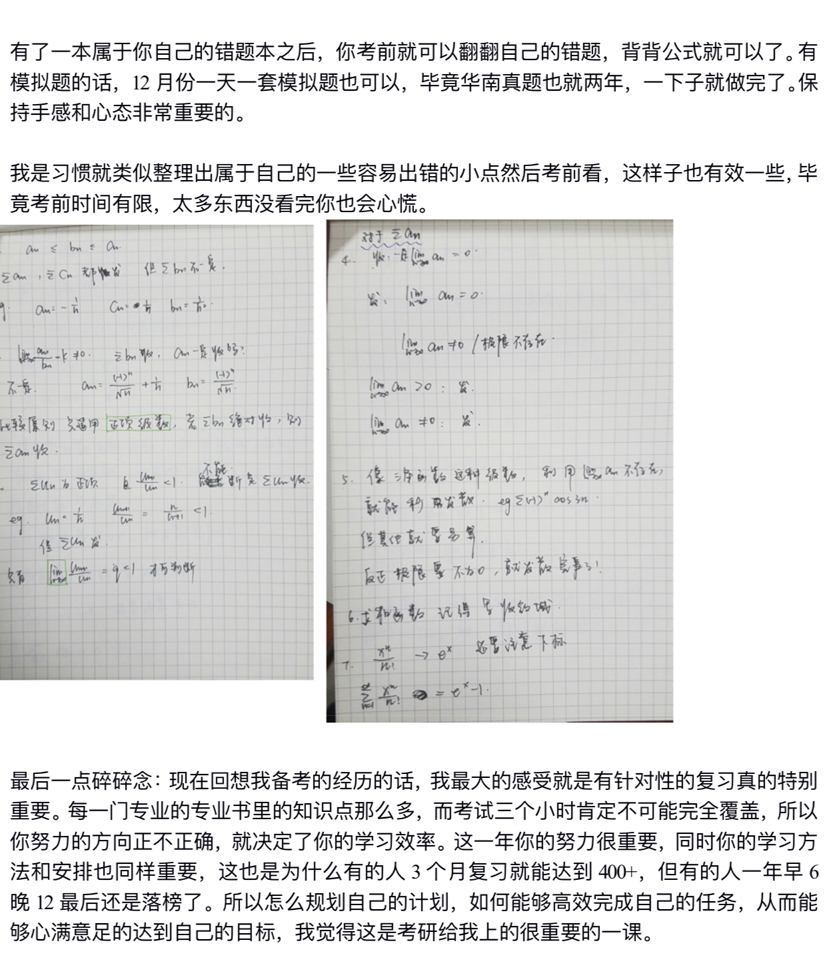 有了一本属于你自己的错题本之后，你考前就可以翻翻自己的错题，背背公式就可以了。有
模拟题的话，12 月份一天一套模拟题也可以，毕竟华南真题也就两年，一下子就做完了。保
持手感和心态非常重要的。
我是习惯就类似整理出属于自己的一些容易出错的小点然后考前看，这样子也有效一些，毕
竟考前时间有限，太多东西没看完你也会心慌。
an ≤ bn ≤ Cn
Σan，ΣCn 都收敛 但Σbn不一定.
an=-1/n Cn=1/n bn=1/n²
lim an/bn=k≠0. Σbn收，an一定收吗?
不一定. an=(-1)^n/√n+1/n bn=(-1)^n/√n
比较原则 只适用 正项级数，若Σbn绝对收，则
Σan收.
ΣUn为正项 且 Un+1/Un<1. 不能断定ΣUn收.
eg. Un=1/n Un+1/Un=n/n+1<1
但ΣUn发
只有 lim Un+1/Un=q<1 才可判断
对于 Σan
4. 收：一定 lim an=0.
发： lim an=0.
lim an≠0 / 极限不存在.
lim an>0：发.
lim an≠0：发.
5. 像三角函数这种级数，利用 lim an不存在，
就能利用发散. eg Σ(-1)^n cos3n.
但其他就要另算.
反正极限要不为0，就发散完事了!
6.求和函数 记得 写收敛域.
7. x^n/n! → e^x 还要注意下标
Σ x^n/n! = e^x-1.
最后一点碎碎念：现在回想我备考的经历的话，我最大的感受就是有针对性的复习真的特别
重要。每一门专业的专业书里的知识点那么多，而考试三个小时肯定不可能完全覆盖，所以
你努力的方向正不正确，就决定了你的学习效率。这一年你的努力很重要，同时你的学习方
法和安排也同样重要，这也是为什么有的人 3 个月复习就能达到 400+，但有的人一年早 6
晚 12 最后还是落榜了。所以怎么规划自己的计划，如何能够高效完成自己的任务，从而能
够心满意足的达到自己的目标，我觉得这是考研给我上的很重要的一课。